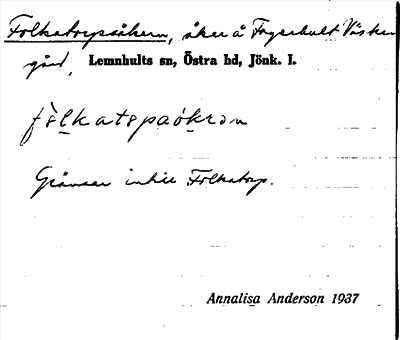 Folkatorpsåkern, åker å Fagerhult Väster
gård, Lemnhults sn, Östra hd, Jönk. l.
fòlkatspaókrɔn
Gränsar intill Folkatorp.
Annalisa Anderson 1937